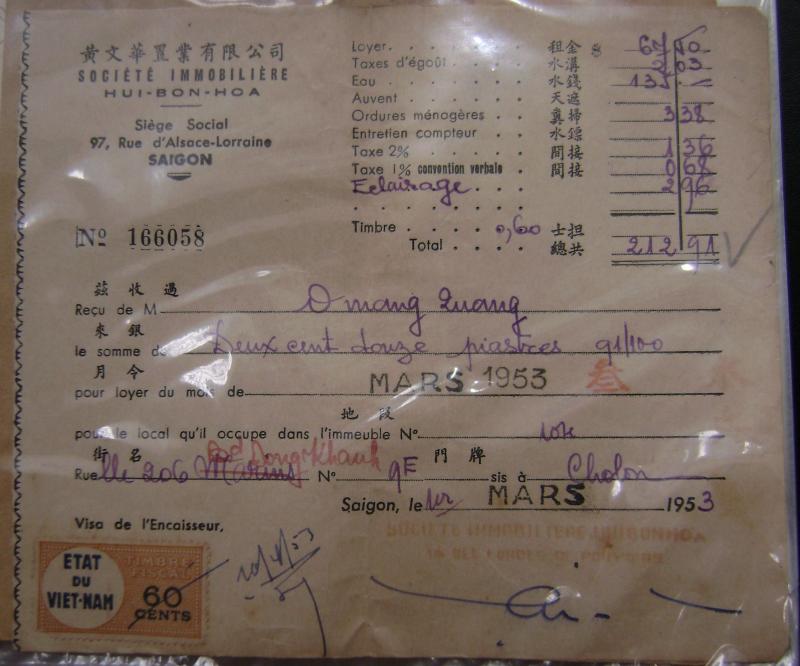 黃文華置業有限公司
SOCIÉTÉ IMMOBILIÈRE
HUI-BON-HOA
Siège Social
97, Rue d'Alsace-Lorraine
SAIGON
Nº 166058
Loyer. 租金 $ 67 10
Taxes d'égoût 水溝 2 03
Eau 水錢 135 —
Auvent 天遮
Ordures ménagères 糞掃 3 38
Entretien compteur 水鏢
Taxe 2% 間接 1 36
Taxe 1% convention verbale 間接 0 68
Eclairage 2 96
Timbre 0,60 士担
Total 總共 212 91
茲收過
Reçu de M O mang Quang
來銀
la somme de Deux cent douze piastres 91/100
月令
pour loyer du mois de MARS 1953 叁
地段
pour le local qu'il occupe dans l'immeuble Nº
街名 Bd Dong Khanh 門牌
Rue 206 Marins Nº 9E sis à Cholon
Saigon, le 1er MARS 1953
Visa de l'Encaisseur,
SOCIÉTÉ IMMOBILIÈRE HUIBONHOA
ETAT
DU
VIET-NAM
TIMBRE
FISCAL
60
CENTS